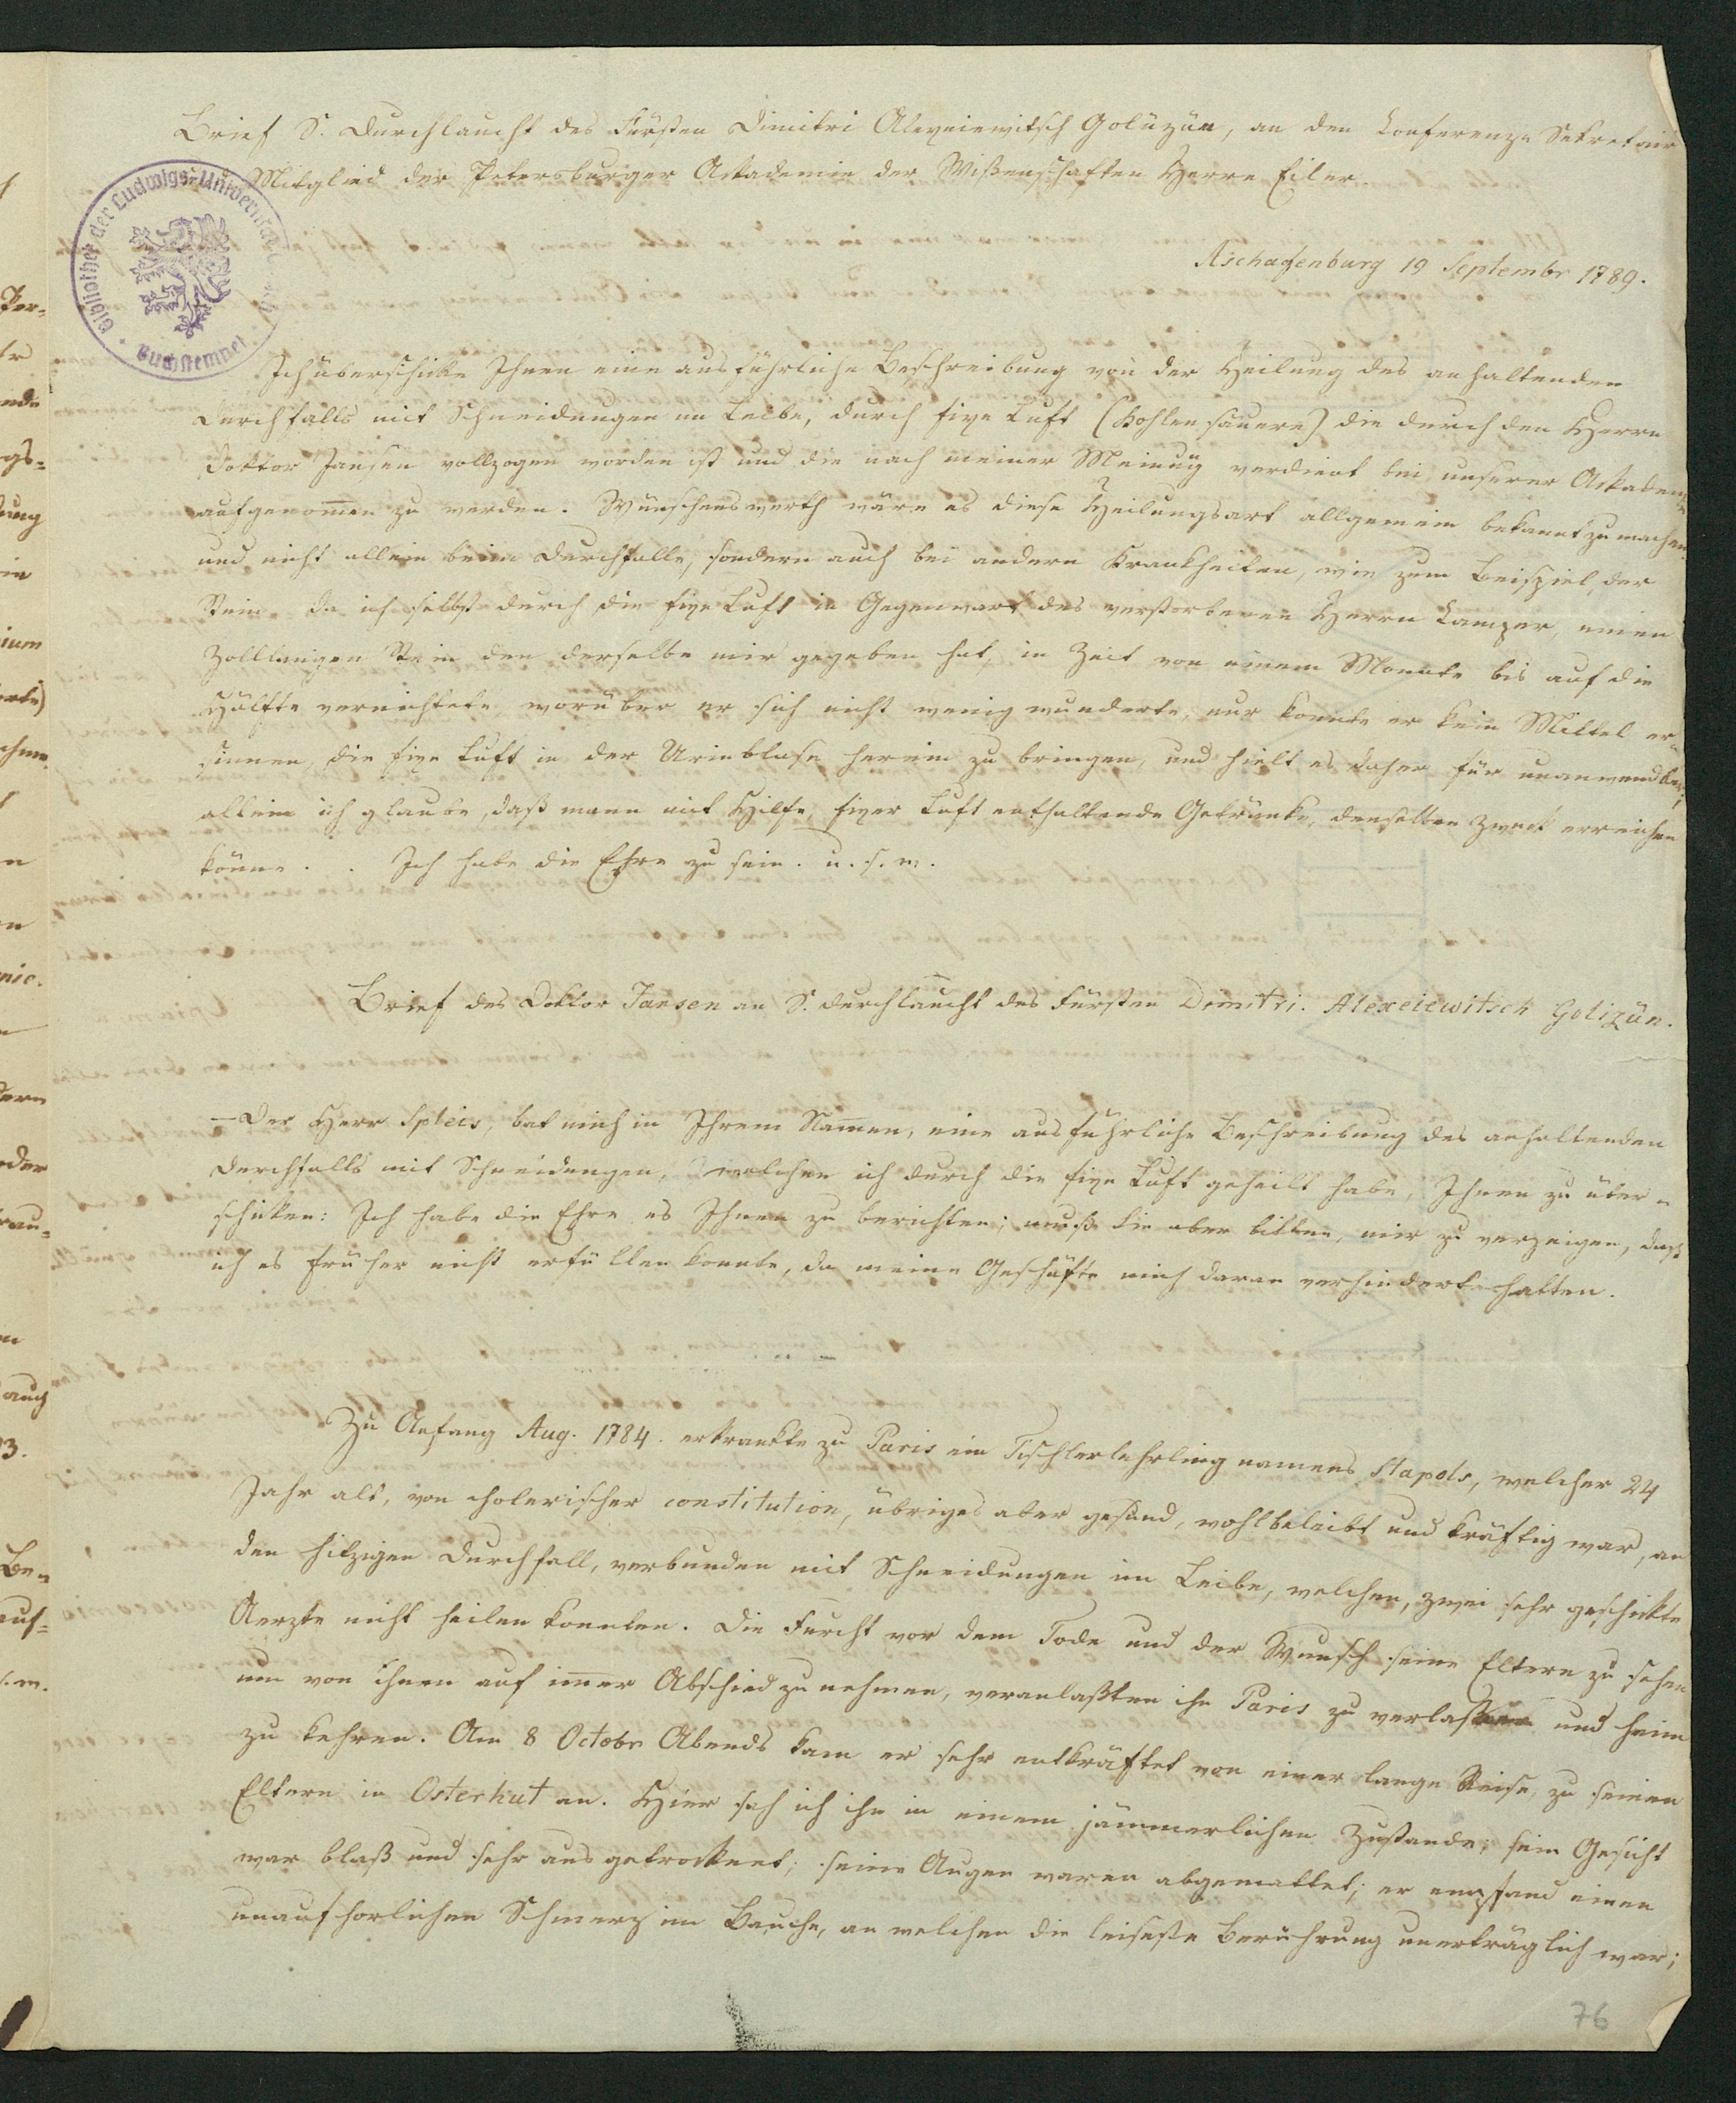 Brief S. Durchlaucht des Fürsten Dimitri Alexeiewitsch Golüzün, an den Conferenz Sekretair
Mitglied der Petersburger Akademie der Wißenschaften Herrn Eiler.
Bibliothek der Ludwigs-Universität
Buchstempel
Aschaffenburg 19 Septembr 1789.
Ich überschicke Ihnen eine ausführliche Beschreibung von der Heilung des anhaltenden
Durchfalls mit Schneidungen im Leibe, durch fixe Luft (Kohlensäuere) die durch den Herrn
Doktor Jansen vollzogen worden ist und die nach meiner Meinung verdient bei unserer Akademie
aufgenomen zu werden. Wünschenswerth wäre es diese Heilungsart allgemein bekannt zu machen
und nicht allein beim Durchfalle, sondern auch bei andern Krankheiten, wie zum Beispiel, der
Stein. Da ich selbst durch die fixe Luft in Gegenwart des verstorbenen Herrn Camper, einen
Zolllangen Stein den derselbe mir gegeben hat, in Zeit von einem Monate bis auf die
Hälfte vernichtete worüber er sich nicht wenig wunderte, nur konnte er kein Mittel er¬
sinnen, die fixe Luft in der Urinblase herein zu bringen, und hielt es daher für unanwendbar,
allein ich glaube, daß mann mit Hilfe, fixer Luft enthaltende Getränke, denselben Zweck erreichen
könne. . Ich habe die Ehre zu sein. u. s. w.
Brief des Doktor Jansen an S. Durchlaucht des Fürsten Dimitri. Alexeiewitsch Golizün.
– Der Herr Spleis, bat mich in Ihrem Namen, eine ausführliche Beschreibung des anhaltenden
Durchfalls mit Schneidungen, welchen ich durch die fixe Luft geheilt habe, Ihnen zu über¬
schicken: Ich habe die Ehre es Ihnen zu berichten; muß Sie aber bitten, mir zu verzeigen, daß
ich es früher nicht erfüllen konnte, da meine Geschäfte mich daran verhindert hatten.
Zu Anfang Aug. 1784. erkrankte zu Paris ein Tischlerlehrling namens Stapols, welcher 24
Jahr alt, von cholerischer constitution, übriges aber gesund, wohlbeleibt und kräftig war, an
den hitzigen Durchfall, verbunden mit Schneidungen im Leibe, welchen, zwei sehr geschickte
Aerzte nicht heilen konnten. Die Furcht vor dem Tode und der Wunsch seine Eltern zu sehen
um von ihnen auf imer Abschied zu nehmen, veranlaßten ihn Paris zu verlaßen und heim
zu kehren. Am 8 Octobr Abends kam er sehr entkräftet von einer lange Reise, zu seinen
Eltern in Osterhut an. Hier sah ich ihn in einem jämmerlichen Zustande; sein Gesicht
war blaß und sehr ausgetrocknet; seine Augen waren abgemattet; er empfand einen
unaufhorlichen Schmerz im Bauche, an welchen die leiseste Berührung unerträglich war;
76